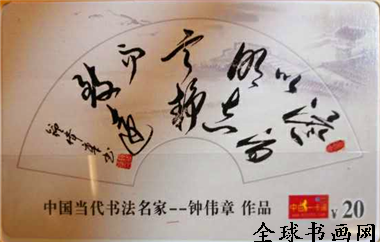 淡泊以
明志
宁静
而
致远
中国当代书法名家--钟伟章 作品
¥20
全球书画网